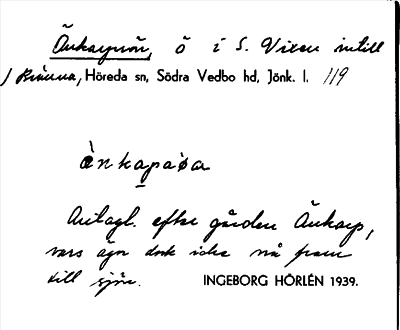 Änkarpsön, ö i S. Vixen intill
/ Rinna, Höreda sn, Södra Vedbo hd, Jönk. l. 119
ànkapaøa
Antagl. efter gården Änkarp,
vars ägor dock icke nå fram
till sjön. INGEBORG HÖRLÉN 1939.